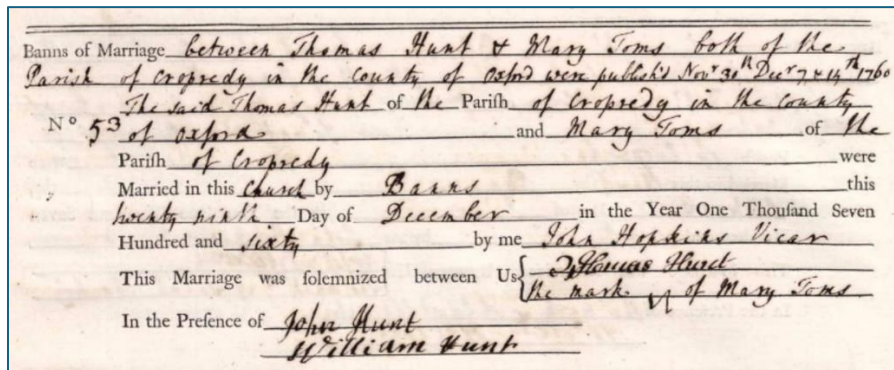 Banns of Marriage between Thomas Hunt & Mary Toms both of the
Parish of Cropredy in the County of Oxford were publish'd Novr 30th Decr 7 & 14th 1760
The said Thomas Hunt of the Parish of Cropredy in the County
No 53 of Oxford and Mary Toms of the
Parish of Cropredy were
Married in this Church by Banns this
twenty ninth Day of December in the Year One Thousand Seven
Hundred and sixty by me John Hopkins Vicar
This Marriage was solemnized between Us Thomas Hunt
the mark of Mary Toms
In the Presence of John Hunt
William Hunt